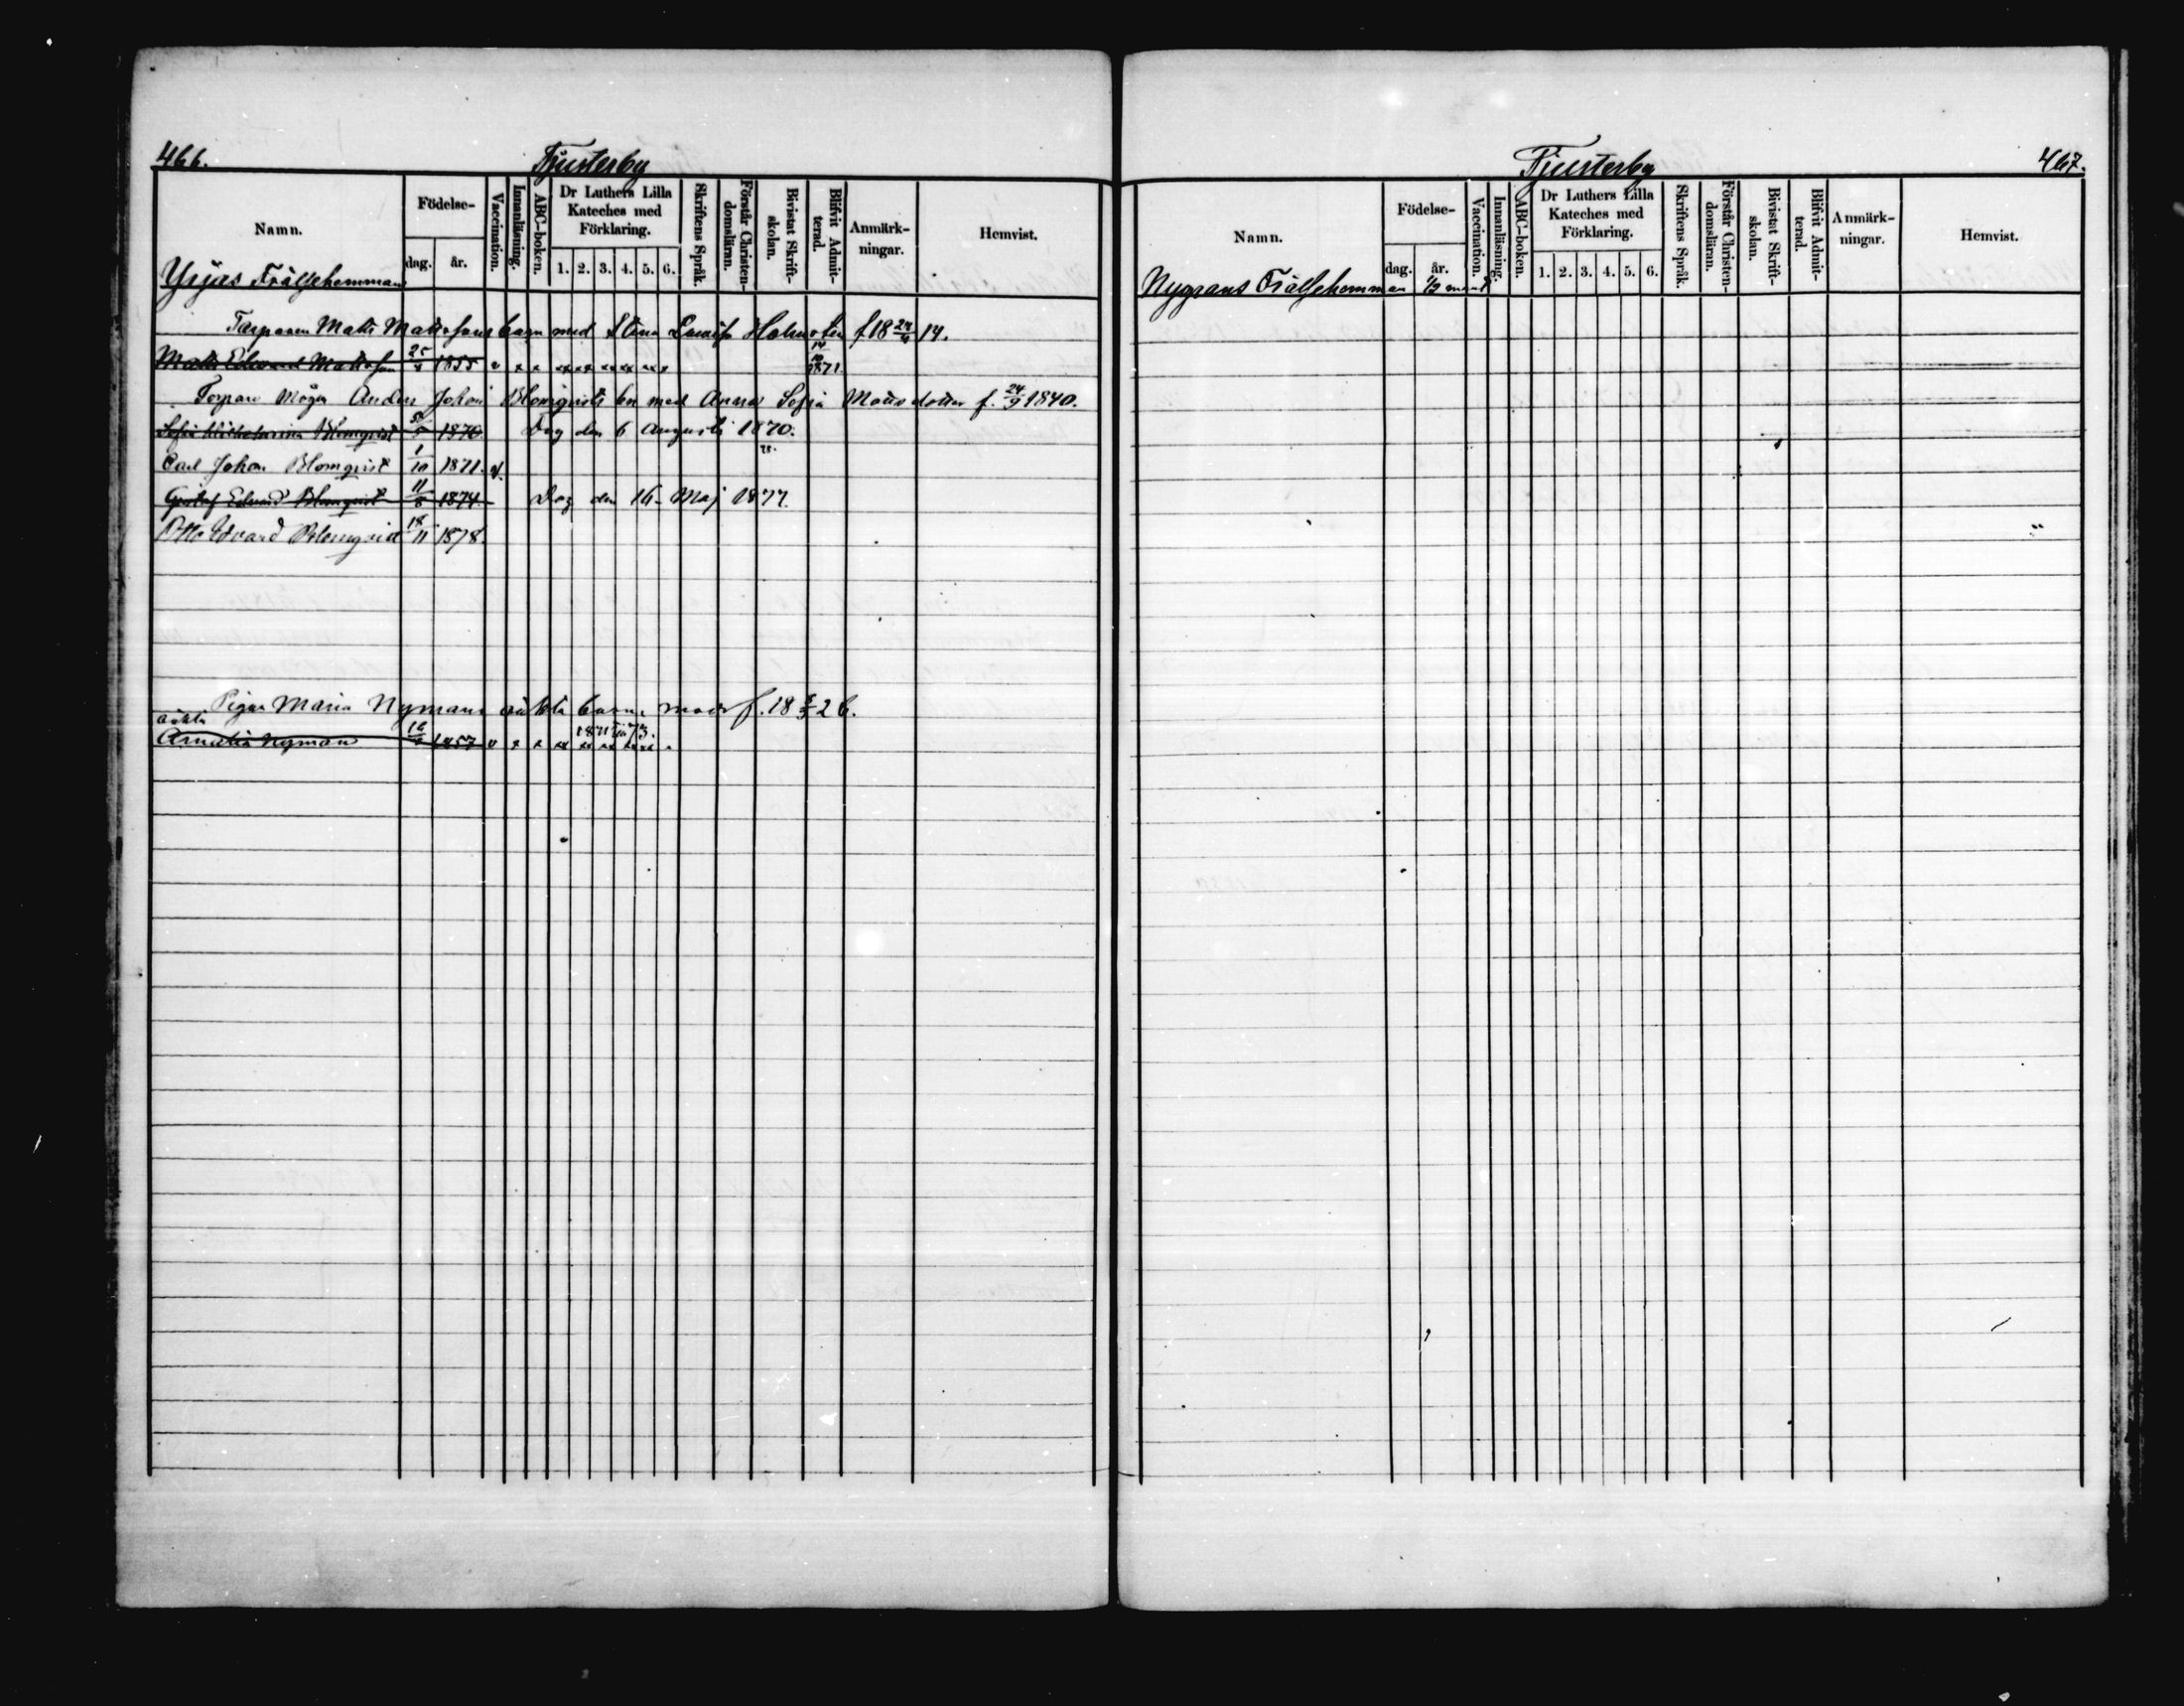 466. Tjusterby
Namn. Födelse- dag. år. Vaccination. Innanläsning. ABC-boken. Dr Luthers Lilla Kateches med Förklaring. 1. 2. 3. 4. 5. 6. Skriftens Språk. Förstår Christen-domsläran. Bivistat Skrift-skolan. Blifvit Admit-terad. Anmärk-ningar. Hemvist.
Yrjas Frälsehemman
Torparen Matts Mattssons barn med Stina Lovisa f 18 24/4 14.
Matts Edvard Mattsson 25/4 1855 v x x xx xx xx xx xx 1871
Torpare Mågen Anders Johan Blomqvists bn med Anna Sofia Matsdotter f. 24/9 1840.
Sofia Blomqvist 1870 Dog den 6 Augusti 1870.
Carl Johan Blomqvist 1/10 1871. v.
Gustaf Edvard Blomqvist 11/5 1874. Dog den 16 Maj 1877.
Otto Edvard Blomqvist 18/11 1878.
Pigan Maria Nymans oäkta barn, modr f. 18 26.
oäkta
Amalia Nyman 16 1857 v x x xx xx xx xx 1871 73.
Tjusterby 467.
Namn. Födelse- dag. år. Vaccination. Innanläsning. ABC-boken. Dr Luthers Lilla Kateches med Förklaring. 1. 2. 3. 4. 5. 6. Skriftens Språk. Förstår Christen-domsläran. Bivistat Skrift-skolan. Blifvit Admit-terad. Anmärk-ningar. Hemvist.
Nygrans Frälsehemman 1/3 mant